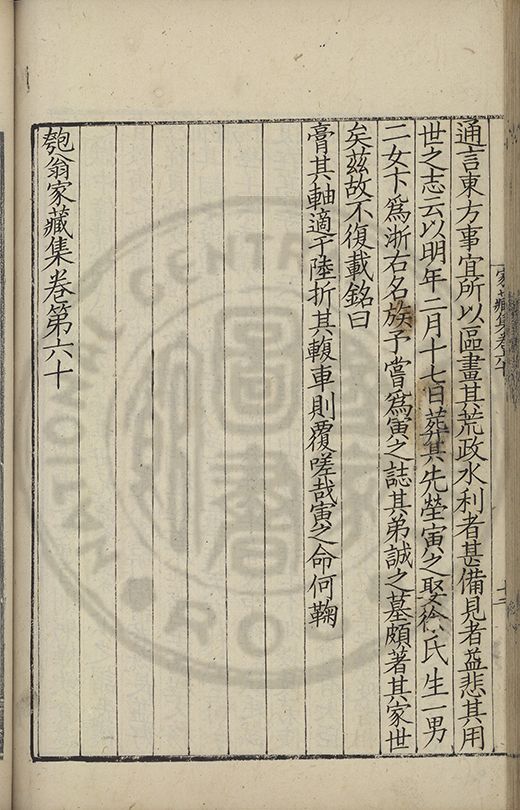 通言東方事宜所以區畫其荒政水利者甚備見者益悲其用
世之志云以明年二月十七日葬其先塋寅之娶徐氏生一男
二女卞為浙右名族予嘗為寅之誌其弟誠之墓頗著其家世
矣茲故不復載銘曰
膏其軸適予陸折其輹車則覆嗟哉寅之命何鞠
匏翁家藏集卷第六十
家藏集卷六十